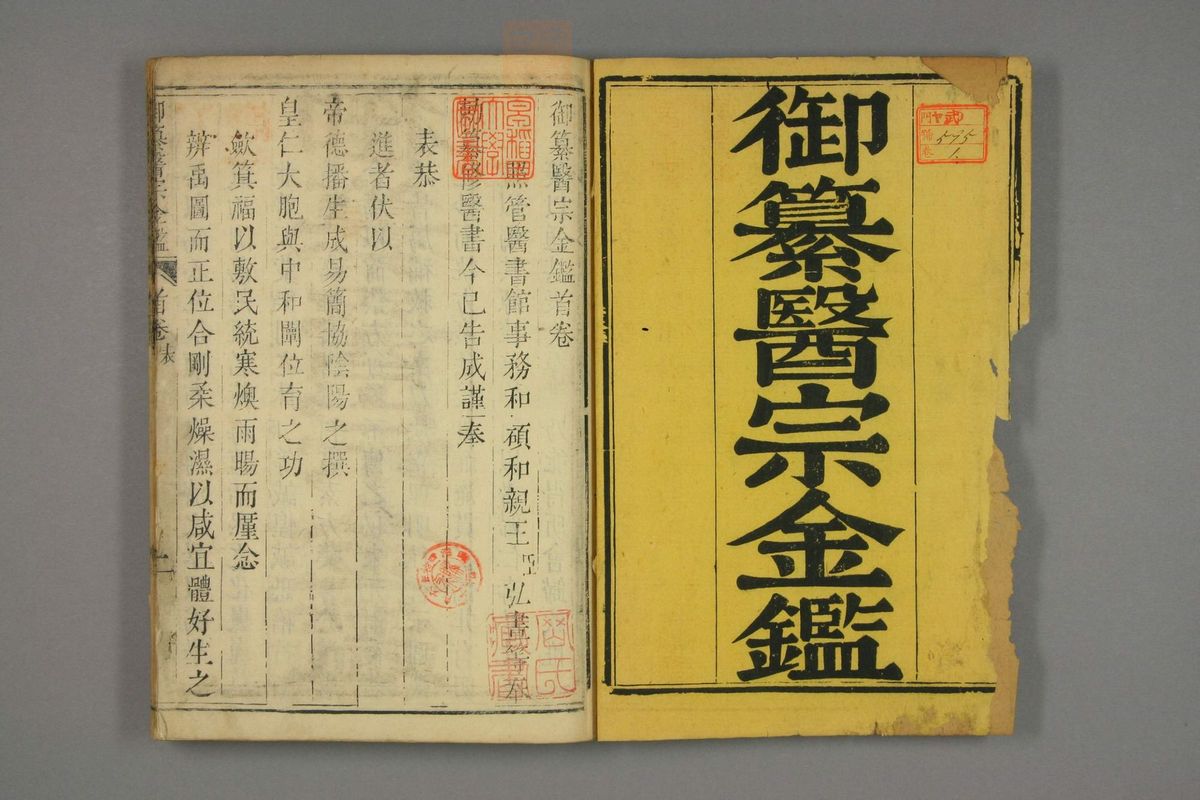 御纂醫宗金鑑
ヤ
575
1.
御纂醫宗金鑑首卷
照管醫書館事務和碩和親王臣弘晝等奉
勅纂修醫書今已告成謹奉
表恭
進者伏以
帝德播生成易簡協陰陽之撰
皇仁大胞與中和闡位育之功
斂箕福以敷民統寒燠雨暘而厪念
辨禹圖而正位合剛柔燥濕以咸宜體好生之
御纂醫宗金鑑 首卷 表 一